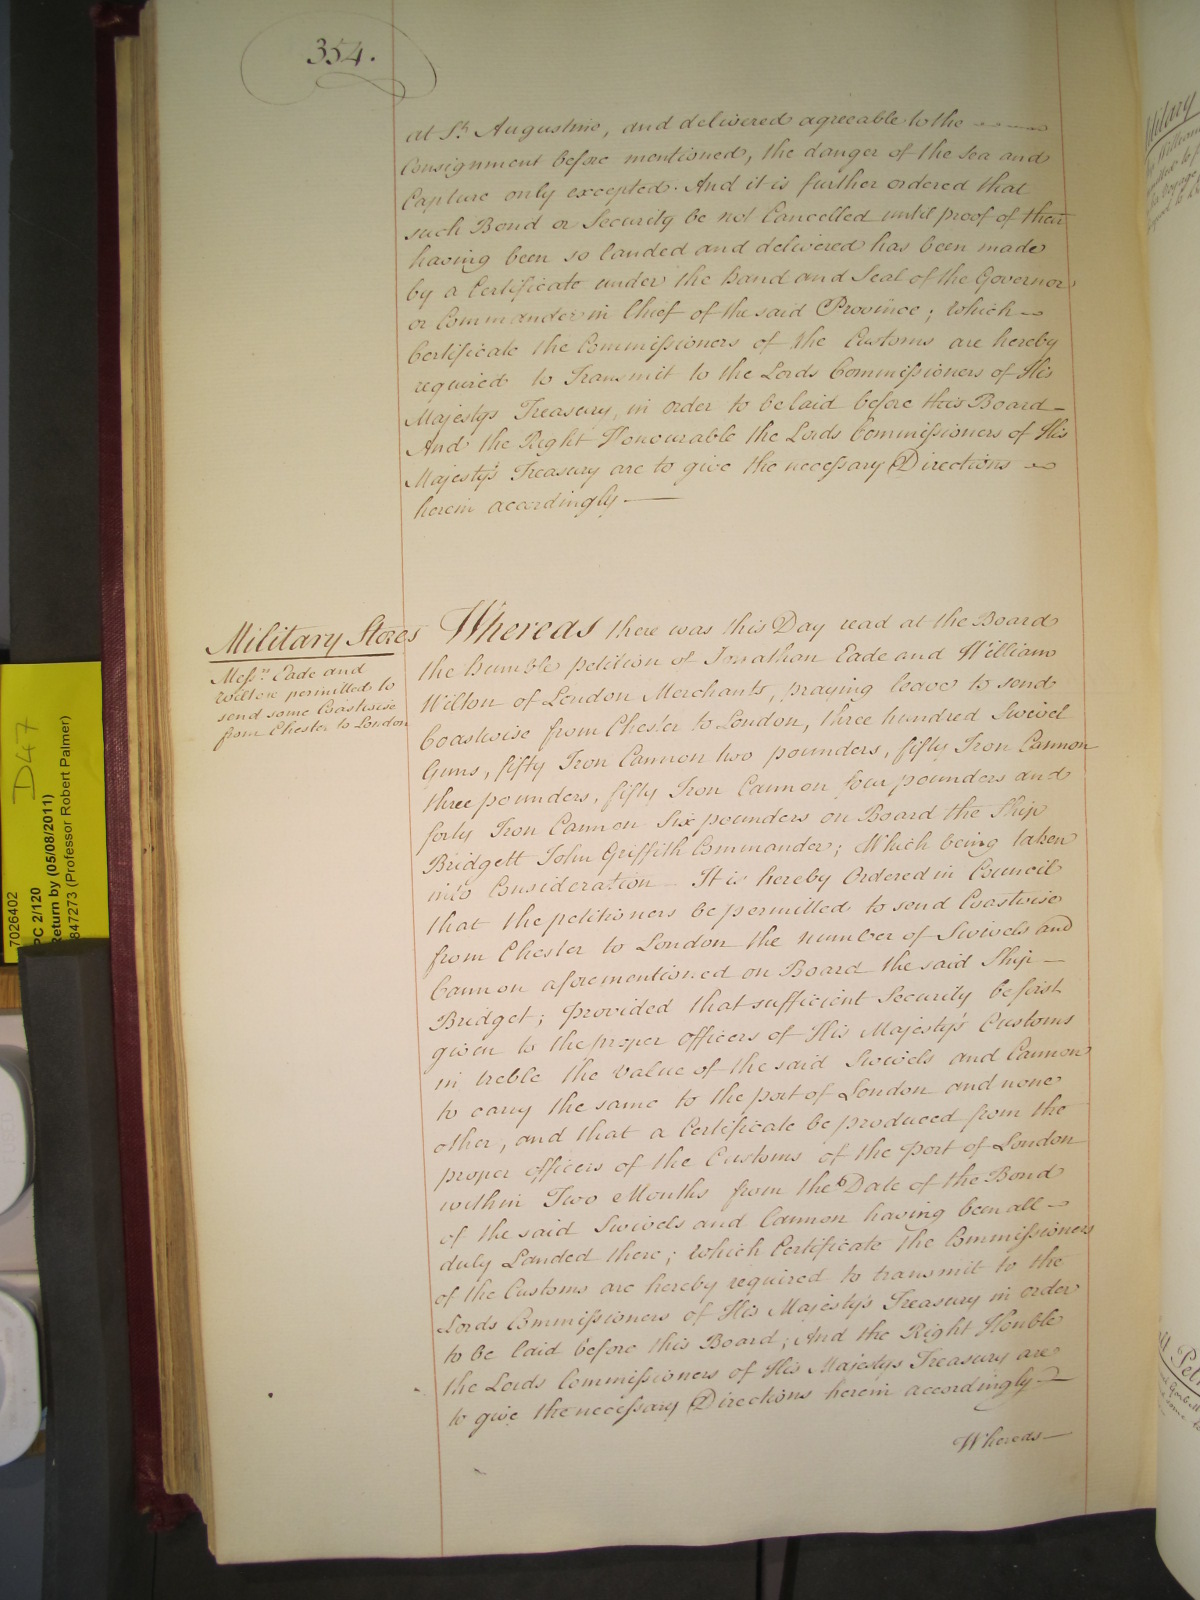 354.
at St. Augustine, and delivered agreeable to the
Consignment before mentioned, the danger of the Sea and
Capture only excepted. And it is further ordered that
such Bond or Security be not Cancelled until proof of their
having been so landed and delivered has been made
by a Certificate under the hand and Seal of the Governor
or Commander in Chief of the said Province; Which
Certificate the Commissioners of the Customs are hereby
required to Transmit to the Lords Commissioners of His
Majestys Treasury, in order to be laid before this Board
And the Right Honourable the Lords Commissioners of His
Majesty's Treasury are to give the necessary Directions
herein accordingly
Military Stores
Messrs. Eade and
Wilton permitted to
send some Coastwise
from Chester to London
Whereas there was this Day read at the Board
the humble petition of Jonathan Eade and William
Wilton of London Merchants, praying leave to send
Coastwise from Chester to London, three hundred Swivel
Guns, fifty Iron Cannon two pounders, fifty Iron Cannon
three pounders, fifty Iron Cannon four pounders and
forty Iron Cannon Six pounders on Board the Ship
Bridgett John Griffith Commander; Which being taken
into Consideration It is hereby Ordered in Council
that the petitioners be permitted to send Coastwise
from Chester to London the number of Swivels and
Cannon aforementioned on Board the said Ship
Bridget; provided that sufficient Security be first
given to the proper officers of His Majesty's Customs
in treble the value of the said Swivels and Cannon
to carry the same to the port of London and none
other, and that a Certificate be produced from the
proper officers of the Customs of the port of London
within Two Months from the Date of the Bond
of the said Swivels and Cannon having been all
duly Landed there; which Certificate the Commissioners
of the Customs are hereby required to transmit to the
Lords Commissioners of His Majesty's Treasury in order
to be laid before this Board; And the Right Honble
the Lords Commissioners of His Majestys Treasury are
to give the necessary Directions herein accordingly
Whereas
D47
7026402
PC 2/120
Return by (05/08/2011)
847273 (Professor Robert Palmer)
Military